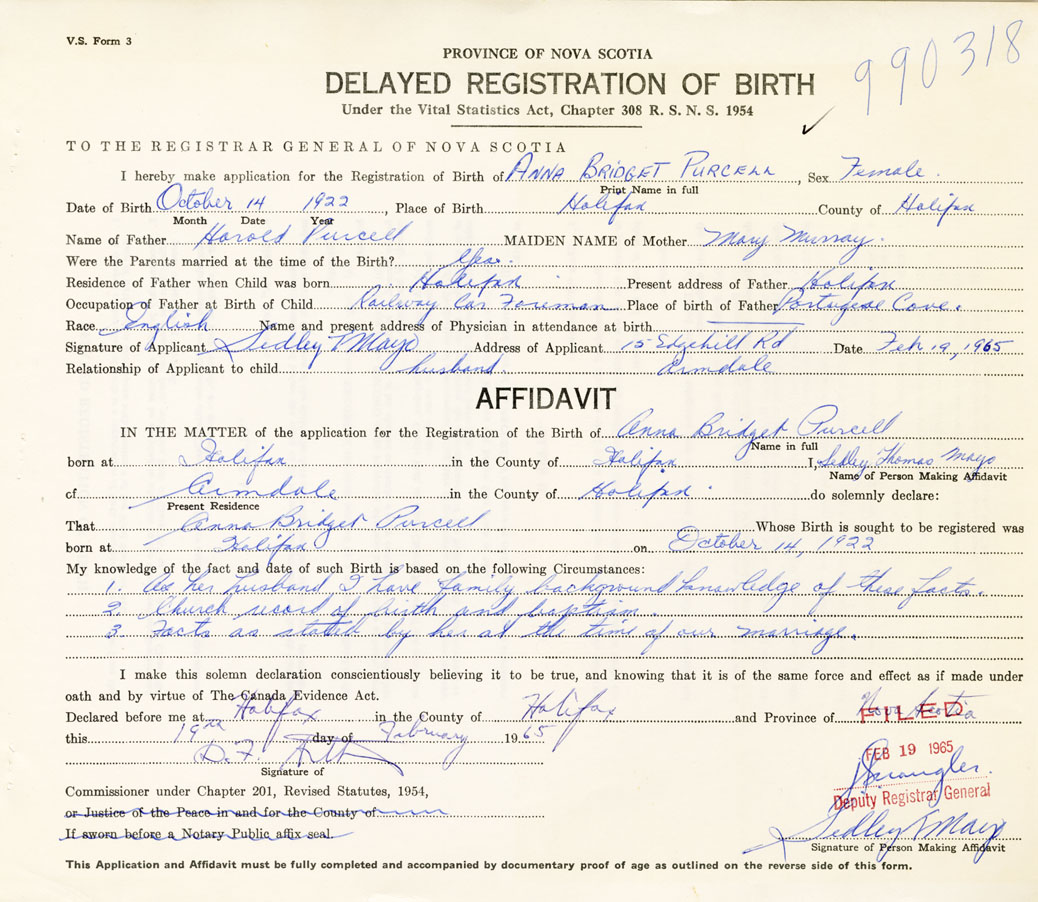 V.S. Form 3
990318
PROVINCE OF NOVA SCOTIA
DELAYED REGISTRATION OF BIRTH
Under the Vital Statistics Act, Chapter 308 R. S. N. S. 1954
TO THE REGISTRAR GENERAL OF NOVA SCOTIA
I hereby make application for the Registration of Birth of ANNA BRIDGET PURCELL, Sex Female.
Print Name in full
Date of Birth October 14 1922, Place of Birth Halifax County of Halifax
Month Date Year
Name of Father Harold Purcell MAIDEN NAME of Mother Mary Murray.
Were the Parents married at the time of the Birth? Yes.
Residence of Father when Child was born Halifax Present address of Father Halifax
Occupation of Father at Birth of Child Railway Car Foreman Place of birth of Father Portugese Cove.
Race English Name and present address of Physician in attendance at birth
Signature of Applicant Sedley T Mayo Address of Applicant 15 Edgehill Rd Date Feb 19, 1965
Relationship of Applicant to child husband. Armdale
AFFIDAVIT
IN THE MATTER of the application for the Registration of the Birth of Anna Bridget Purcell
Name in full
born at Halifax in the County of Halifax I, Sedley Thomas Mayo
Name of Person Making Affidavit
of Armdale in the County of Halifax. do solemnly declare:
Present Residence
That Anna Bridget Purcell Whose Birth is sought to be registered was
born at Halifax on October 14, 1922
My knowledge of the fact and date of such Birth is based on the following Circumstances:
1. As her husband I have family background knowledge of these facts.
2. Church record of birth and baptism.
3. Facts as stated by her at the time of our marriage.
I make this solemn declaration conscientiously believing it to be true, and knowing that it is of the same force and effect as if made under
oath and by virtue of The Canada Evidence Act.
Declared before me at Halifax in the County of Halifax and Province of Nova Scotia
FILED
this 19th day of February 1965
D. F.
FEB 19 1965
Signature of
Commissioner under Chapter 201, Revised Statutes, 1954,
Deputy Registrar General
or Justice of the Peace in and for the County of
Sedley T Mayo
If sworn before a Notary Public affix seal.
Signature of Person Making Affidavit
This Application and Affidavit must be fully completed and accompanied by documentary proof of age as outlined on the reverse side of this form.